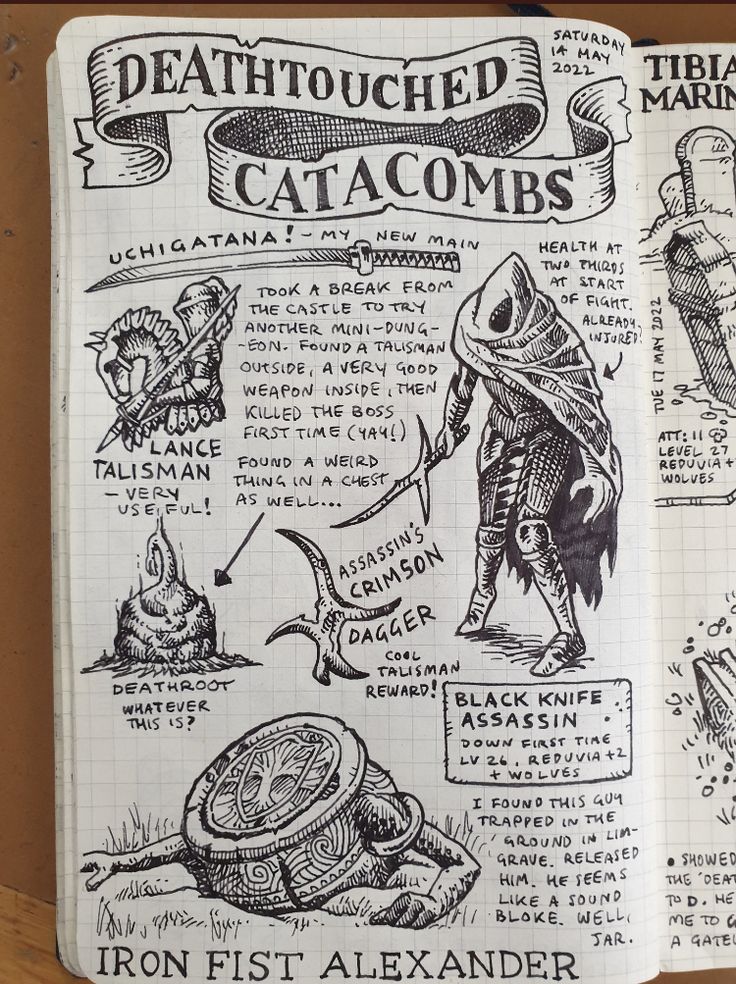 DEATHTOUCHED
CATACOMBS
SATURDAY
14 MAY
2022
UCHIGATANA! - MY NEW MAIN
TOOK A BREAK FROM
THE CASTLE TO TRY
ANOTHER MINI-DUNG-
-EON. FOUND A TALISMAN
OUTSIDE, A VERY GOOD
WEAPON INSIDE, THEN
KILLED THE BOSS
FIRST TIME (YAY!)
FOUND A WEIRD
THING IN A CHEST
AS WELL...
LANCE
TALISMAN
- VERY
USEFUL!
HEALTH AT
TWO THIRDS
AT START
OF FIGHT.
ALREADY
INJURED?
DEATHROOT
WHATEVER
THIS IS?
ASSASSIN'S
CRIMSON
DAGGER
COOL
TALISMAN
REWARD!
BLACK KNIFE
ASSASSIN
DOWN FIRST TIME
LV 26, REDUVIA +2
+ WOLVES
I FOUND THIS GUY
TRAPPED IN THE
GROUND IN LIM-
GRAVE. RELEASED
HIM. HE SEEMS
LIKE A SOUND
BLOKE. WELL,
JAR.
IRON FIST ALEXANDER
TIBIA
MARIN
TUE 17 MAY 2022
ATT: 11
LEVEL 27
REDUVIA +
WOLVES
• SHOWED
THE 'DEAT
TO D. HE
ME TO G
A GATEL